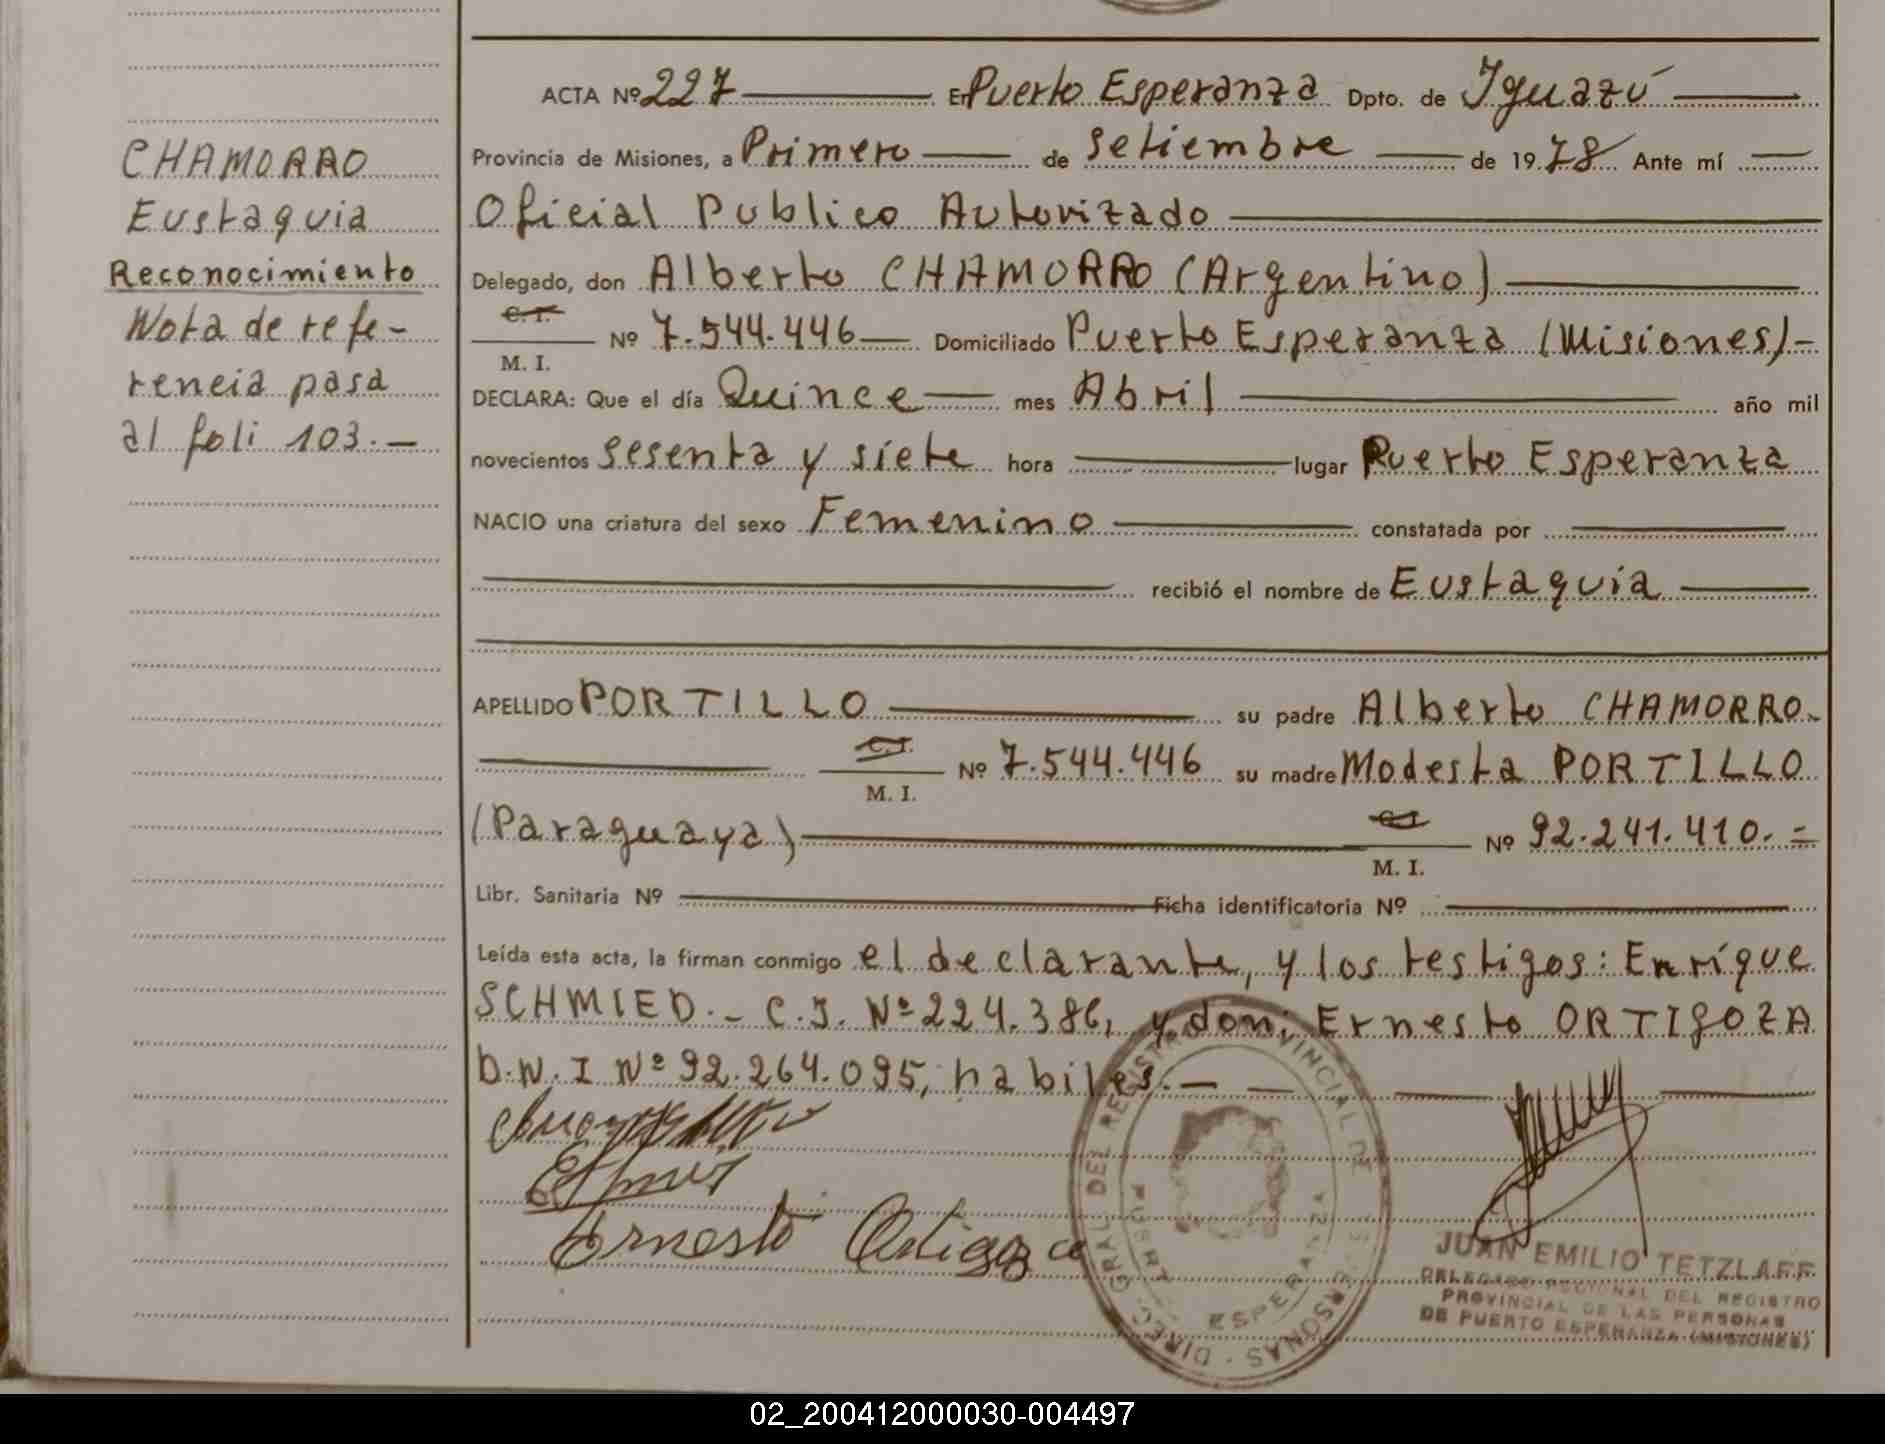 CHAMORRO
Eustaquia
Reconocimiento
Nota de refe-
rencia pasa
al foli 103.-
ACTA Nº 227 En Puerto Esperanza Dpto. de Iguazú
Provincia de Misiones, a Primero de Setiembre de 1978 Ante mí
Oficial Publico Autorizado
Delegado, don Alberto CHAMORRO (Argentino)
C. I.
M. I. Nº 7.544.446 Domiciliado Puerto Esperanza (Misiones)-
DECLARA: Que el día Quince mes Abril año mil
novecientos sesenta y siete hora lugar Puerto Esperanza
NACIO una criatura del sexo Femenino constatada por
recibió el nombre de Eustaquia
APELLIDO PORTILLO su padre Alberto CHAMORRO.
C. I.
M. I. Nº 7.544.446 su madre Modesta PORTILLO
(Paraguaya) C. I.
M. I. Nº 92.241.410.=
Libr. Sanitaria Nº Ficha identificatoria Nº
Leída esta acta, la firman conmigo el declarante, y los testigos: Enríque
SCHMIED.- C.I. Nº 224.386, y don, Ernesto ORTIGOZA
D.N.I Nº 92.264.095, habiles.-
Ernesto Ortigoza
DIREC. GRAL. DEL REGISTRO PROVINCIAL DE LAS PERSONAS
ESPERANZA
JUAN EMILIO TETZLAFF
DELEGADO REGIONAL DEL REGISTRO
PROVINCIAL DE LAS PERSONAS
DE PUERTO ESPERANZA (MISIONES)
02_200412000030-004497